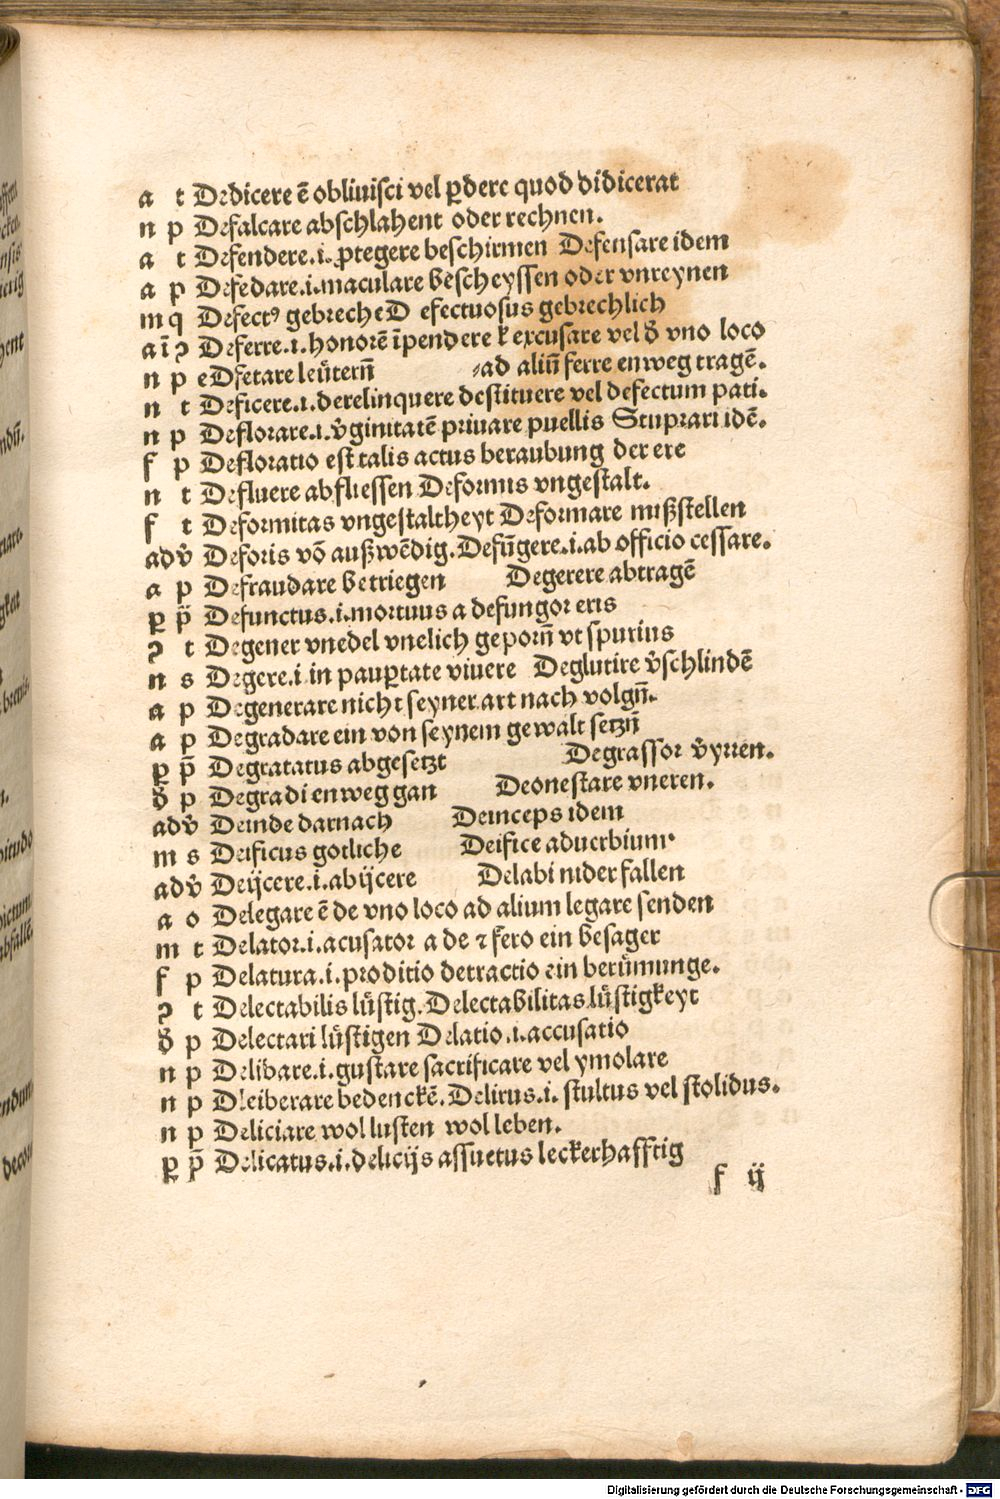 a t Dedicere ē obliuisci vel ꝑdere quod didicerat
n p Defalcare abschlahent oder rechnen.
a t Defendere.i. ꝓtegere beschirmen Defensare idem
a p Defedare.i.maculare bescheyssen oder vnreynen
m q Defectꝰ gebrecheD efectuosus gebrechlich
a ī ꝛ Deferre.i.honorē īpendere ł excusare vel đ vno loco
n p eDfetare leüterñ ⸗ad aliū ferre enweg tragē.
n t Deficere.i.derelinquere destituere vel defectum pati.
n p Deflorare.i.v̄ginitatē priuare puellis Stuprari idē.
f p Defloratio est talis actus beraubung der ere
n t Defluere abfliessen Deformis vngestalt.
f t Deformitas vngestaltheyt Deformare mißstellen
adv̄ Deforis vō außwēdig. Defūgere.i.ab officio cessare.
a p Defraudare betriegen Degerere abtragē
ꝑ ij Defunctus.i.mortuus a defungor eris
ꝛ t Degener vnedel vnelich geporñ vt spurius
n s Degere.i in pauꝑtate viuere Deglutire v̄schlindē
a p Degenerare nicht seyner art nach volgñ.
a p Degradare ein von seynem gewalt setzñ
ꝑ p̄ Degratatus abgesetzt Degrassor v̄yrren.
đ p Degradi enweg gan Deonestare vneren.
adv̄ Deinde darnach Deinceps idem
m s Deificus gotliche Deifice aduerbium
adv̄ Deijcere.i.abijcere Delabi nider fallen
a o Delegare ē de vno loco ad alium legare senden
m t Delator.i.acusator a de ⁊ fero ein besager
f p Delatura.i.proditio detractio ein berümunge.
ꝛ t Delectabilis lüstig. Delectabilitas lüstigkeyt
đ p Delectari lüstigen Delatio.i.accusatio
n p Delibare.i.gustare sacrificare vel ymolare
n p Dleiberare bedenckē. Delirus.i. stultus vel stolidus.
n p Deliciare wol lusten wol leben.
ꝑ p̄ Delicatus.i.delicijs assuetus leckerhafftig
f ij
Digitalisierung gefördert durch die Deutsche Forschungsgemeinschaft - DFG